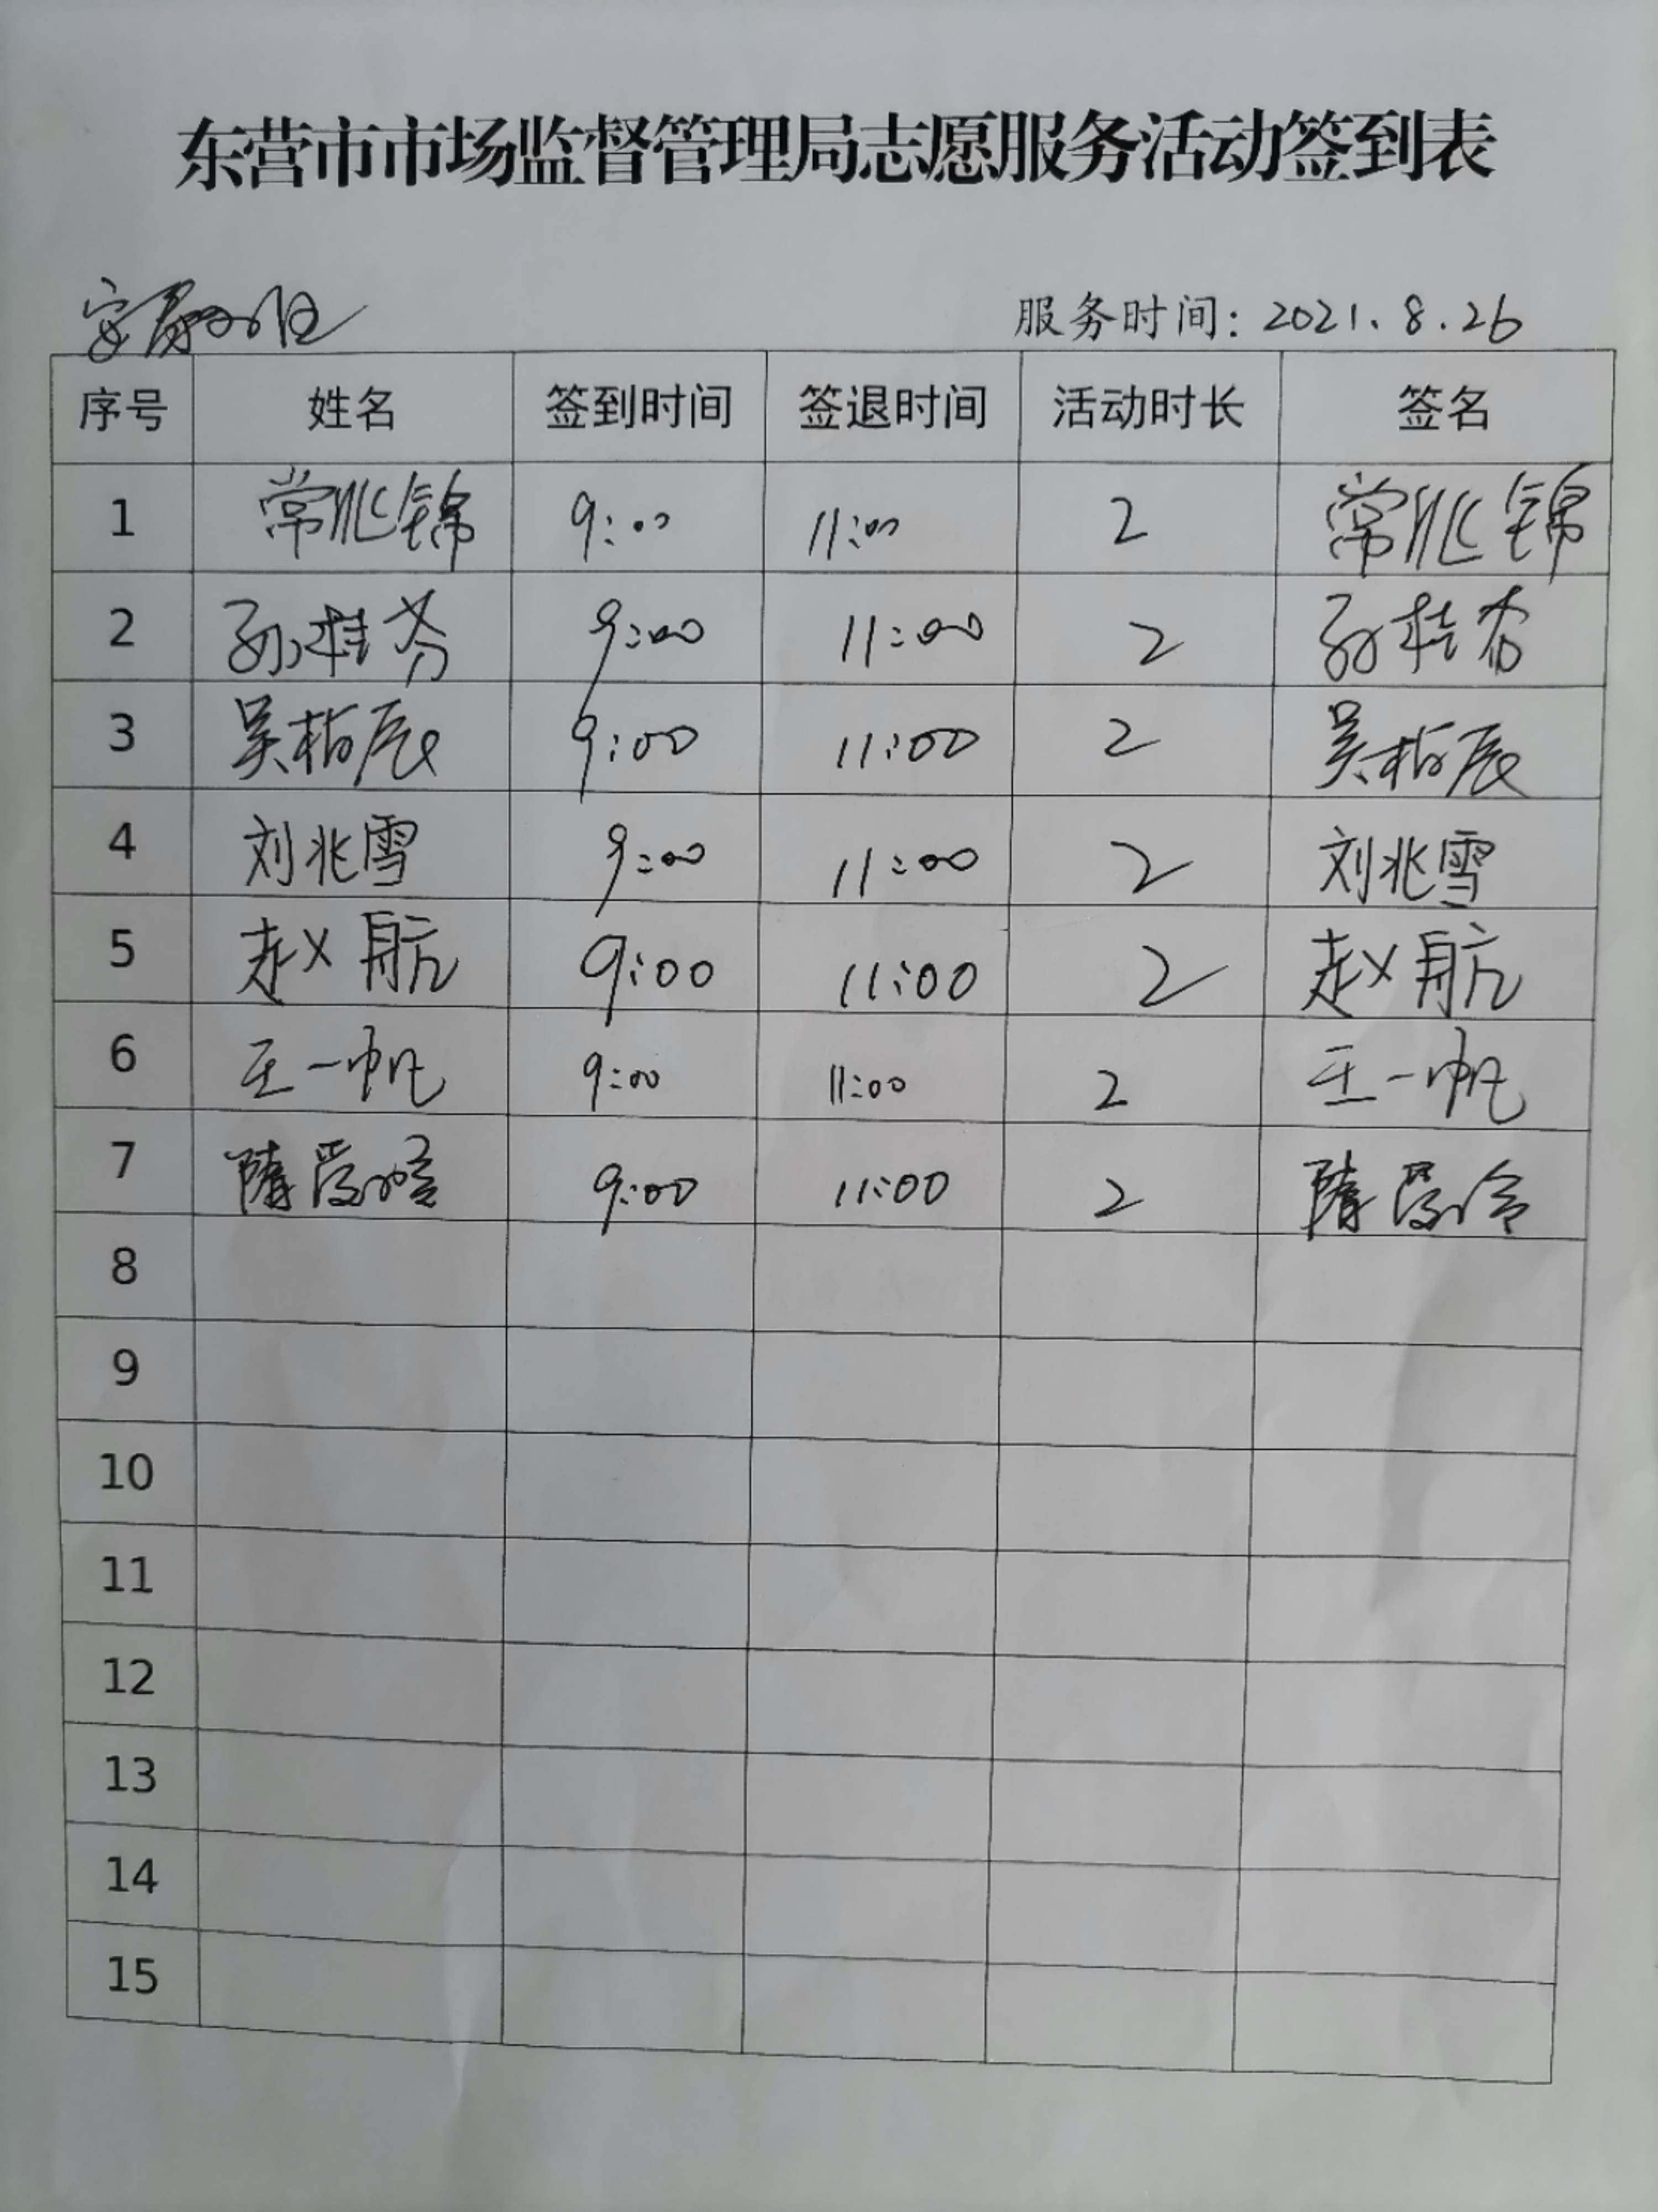 东营市市场监督管理局志愿服务活动签到表
服务时间：2021.8.26
序号 姓名 签到时间 签退时间 活动时长 签名
1 常兆锦 9:00 11:00 2 常兆锦
2 孙桂芬 9:00 11:00 2 孙桂芬
3 吴柏辰 9:00 11:00 2 吴柏辰
4 刘兆雪 9:00 11:00 2 刘兆雪
5 赵航 9:00 11:00 2 赵航
6 王一帆 9:00 11:00 2 王一帆
7 9:00 11:00 2
8
9
10
11
12
13
14
15